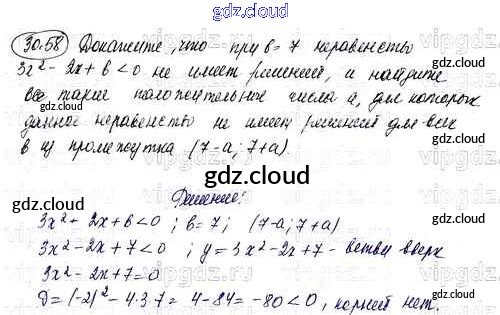 gdz.cloud
30.58 Докажите, что при b = 7 неравенство
3x² - 2x + b < 0 не имеет решений, и найдите
все такие положительные числа a, для которых
данное неравенство не имеет решений для всех
b из промежутка (7-a; 7+a)
gdz.cloud
Решение:
gdz.cloud
3x² + 2x + b < 0 ; b = 7 ; (7-a; 7+a)
3x² - 2x + 7 < 0 ; y = 3x² - 2x + 7 - ветви вверх
3x² - 2x + 7 = 0
D = (-2)² - 4·3·7 = 4 - 84 = -80 < 0, корней нет.
gdz.cloud